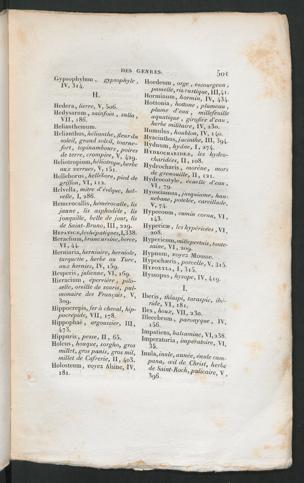 DES GENRES. 501
Gypsophylum, gypsophyle,
IV, 314.
H.
Hedera, lierre, V, 506.
Hedysarum, sainfoin, sulla,
VII, 186.
Helianthemum.
Helianthus, hélianthe, fleur du
soleil, grand soleil, tourne-
fort, topinambours, poires
de terre, crompire, V, 429.
Heliotropium, héliotrope, herbe
aux verrues, V, 151.
Helleborus, hellébore, pied de
griffon, VI, 112.
Helvella, mitre d'évêque, hel-
velle, I, 286.
Hemerocallis, hémérocalle, lis
jaune, lis asphodèle, lis
jonquille, belle de jour, lis
de Saint-Bruno, III, 229.
HEPATICÆ, les hépatiques, I, 338.
Heraclium, brancursine, berce,
VI, 44.
Herniaria, herniaire, herniole,
turquette, herbe au Turc,
aux hernies, IV, 159.
Hesperis, julienne, VI, 169.
Hieracium, épervière, pilo-
selle, oreille de souris, pul-
monaire des Français, V,
309.
Hippocrepis, fer à cheval, hip-
pocrepide, VII, 178.
Hippophaé, argoussier, III,
478.
Hippuris, pesse, II, 65.
Holcus, houque, sorgho, gros
millet, gros panis, gros mil,
millet de Cafrerie, II, 403.
Holosteum, voyez Alsine, IV,
181.
Hordeum, orge, escourgeon,
pamelle, riz rustique, III, 41.
Horminum, hormin, IV, 434.
Hottonia, hottone, plumeau,
plume d'eau, millefeuille
aquatique, giroflée d'eau,
herbe militaire, IV, 230.
Humulus, houblon, IV, 140.
Hyacinthus, jacinthe, III, 394.
Hydnum, hydne, I, 274.
HYDROCHARIDEÆ, les hydro-
charidées, II, 108.
Hydrocharis, morène, mors
de grenouille, II, 121.
Hydrocotyle, écuelle d'eau,
VI, 79.
Hyosciamus, jusquiame, han-
nebane, potelée, careillade,
V, 74.
Hypecoum, cumin cornu, VI,
143.
Hypericæ, les hypéricées, VI,
208.
Hypericum, millepertuis, toute-
saine, VI, 209.
Hypnum, voyez Mousse.
Hypocharis, porcelle, V, 315.
HYPOXYLA, I, 315.
Hyssopus, hysope, IV, 419.
I.
Iberis, thlaspi, taraspic, ibé-
ride, VI, 181.
Ilex, houx, VII, 230.
Illecebrum, paronyque, IV,
156.
Impatiens, balsamine, VI, 238.
Imperatoria, impératoire, VI,
35.
Inula, inule, aunée, énule cam-
pana, œil de Christ, herbe
de Saint-Roch, pulicaire, V,
396.